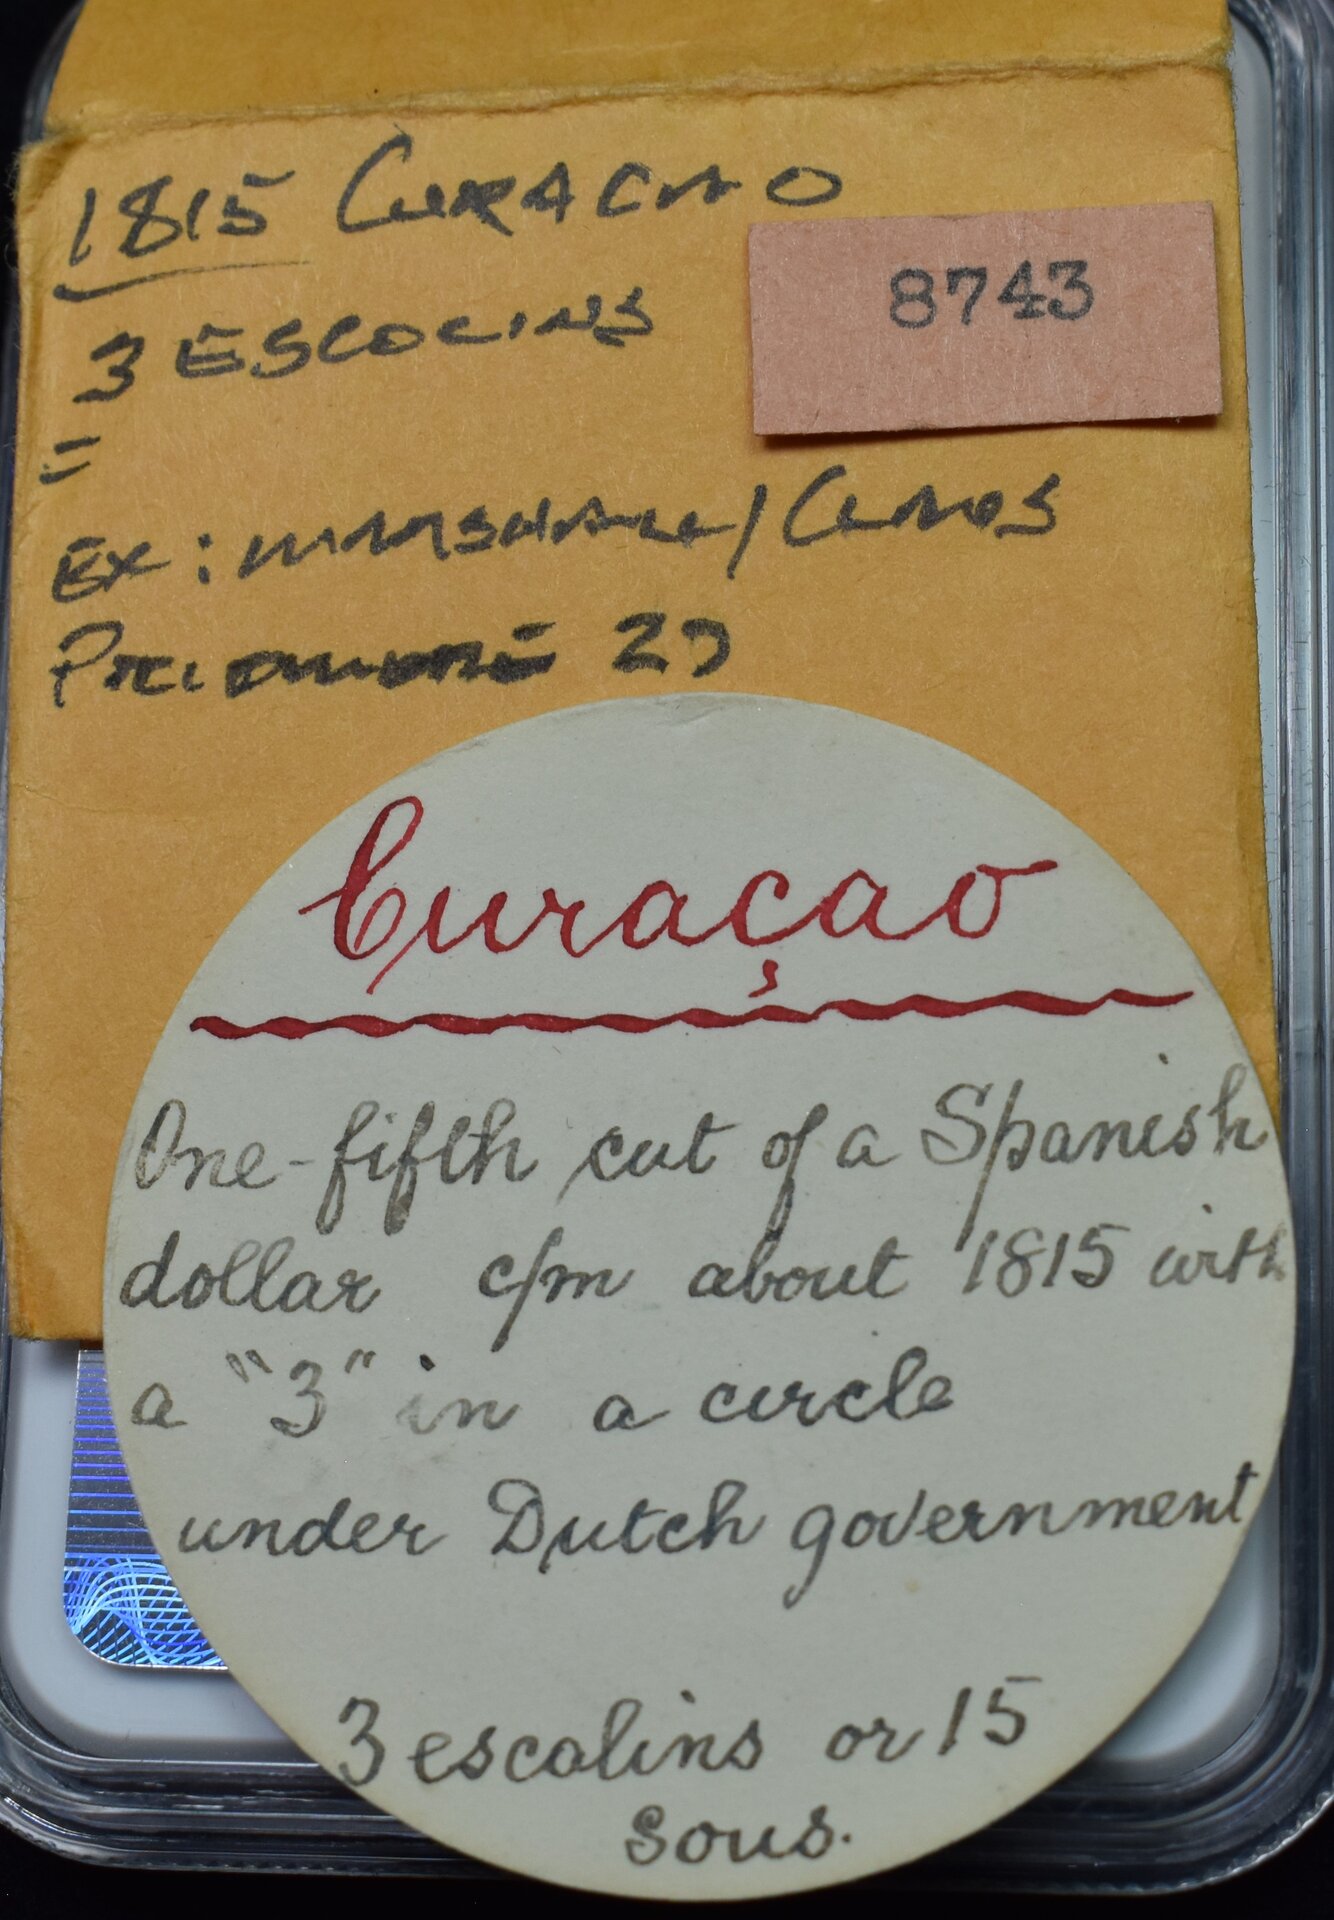 1815 CURACAO
8743
3 ESCOLINS
=
Ex:
29
Curaçao
One-fifth cut of a Spanish
dollar c/m about 1815 with
a "3" in a circle
under Dutch government
3 escalins or 15
sous.